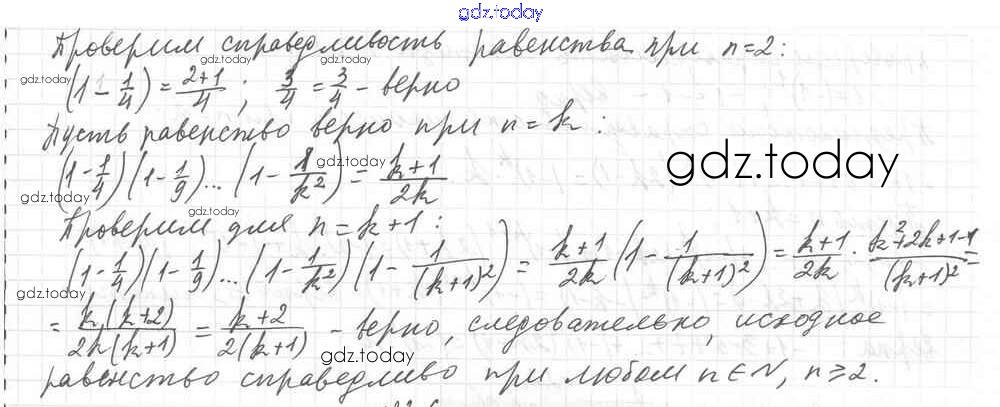 gdz.today
Проверим справедливость равенства при n=2:
gdz.today
(1 - 1/4) = (2+1)/4 ; 3/4 = 3/4 - верно
Пусть равенство верно при n = k :
gdz.today
(1 - 1/4)(1 - 1/9)...(1 - 1/k²) = (k+1)/2k
gdz.today
gdz.today
Проверим для n = k+1 :
(1 - 1/4)(1 - 1/9)...(1 - 1/k²)(1 - 1/(k+1)²) = (k+1)/2k (1 - 1/(k+1)²) = (k+1)/2k · (k²+2k+1-1)/(k+1)² =
gdz.today
= k(k+2)/2k(k+1) = (k+2)/2(k+1) - верно, следовательно, исходное
gdz.today
равенство справедливо при любом n∈N, n⩾2.